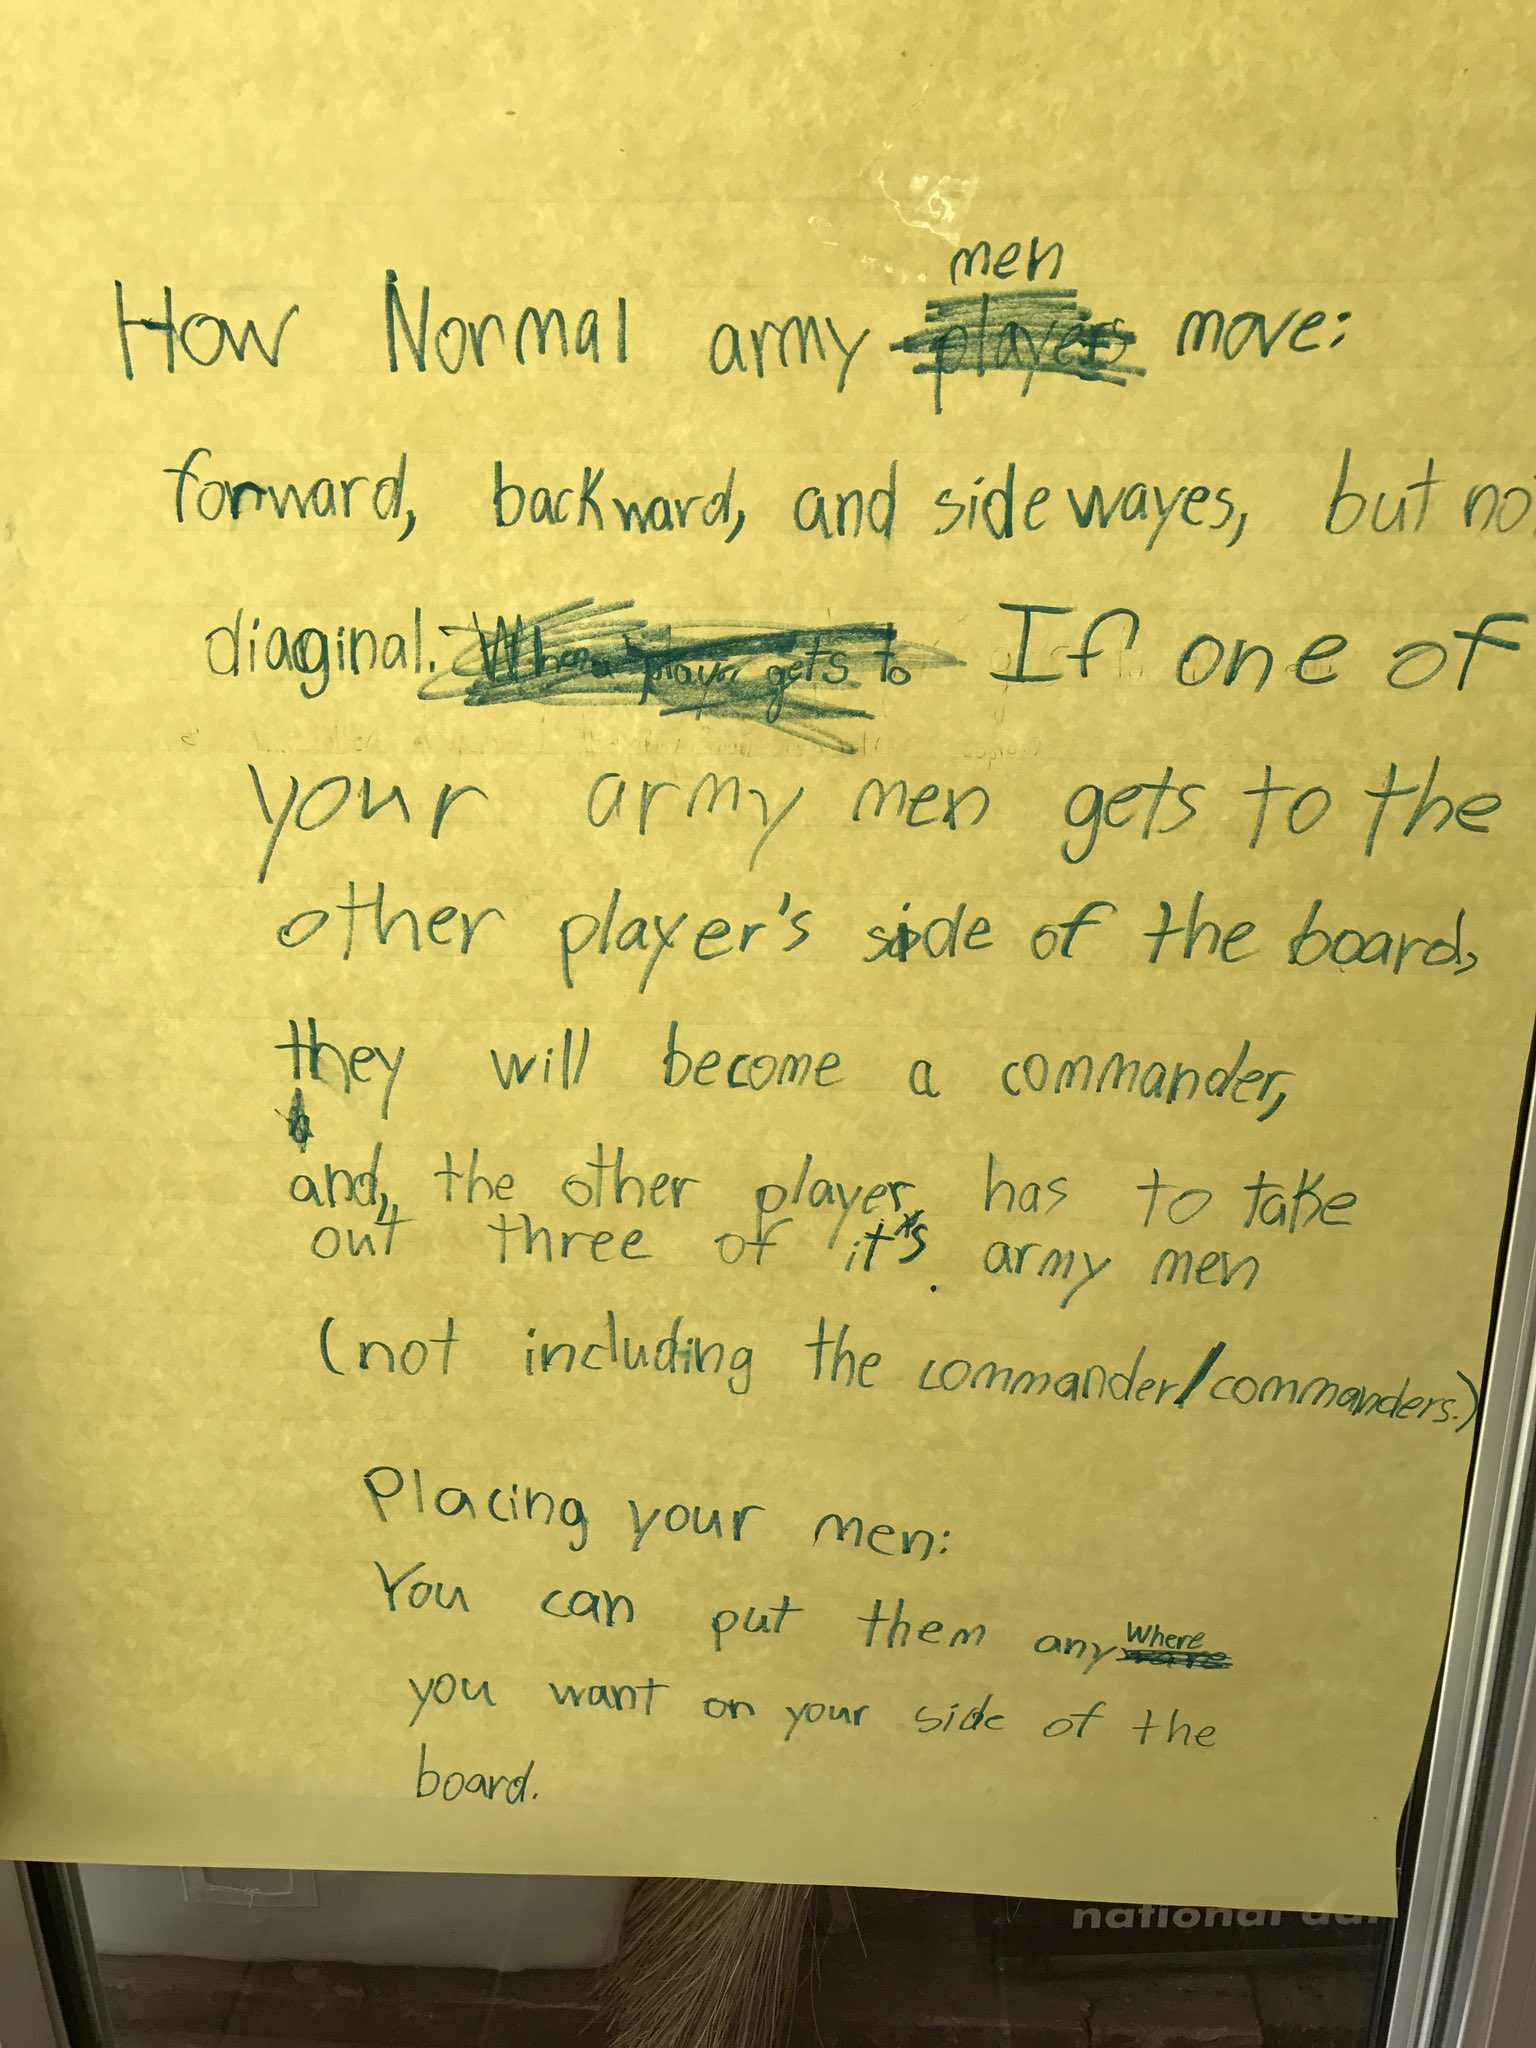 men
How Normal army players move:
forward, backward, and sidewayes, but no
diaginal. When a player gets to If one of
your army men gets to the
other player's side of the board,
they will become a commander,
and, the other player has to take
out three of it's army men
(not including the commander/commanders.)
Placing your men:
You can put them anywhere
you want on your side of the
board.
national